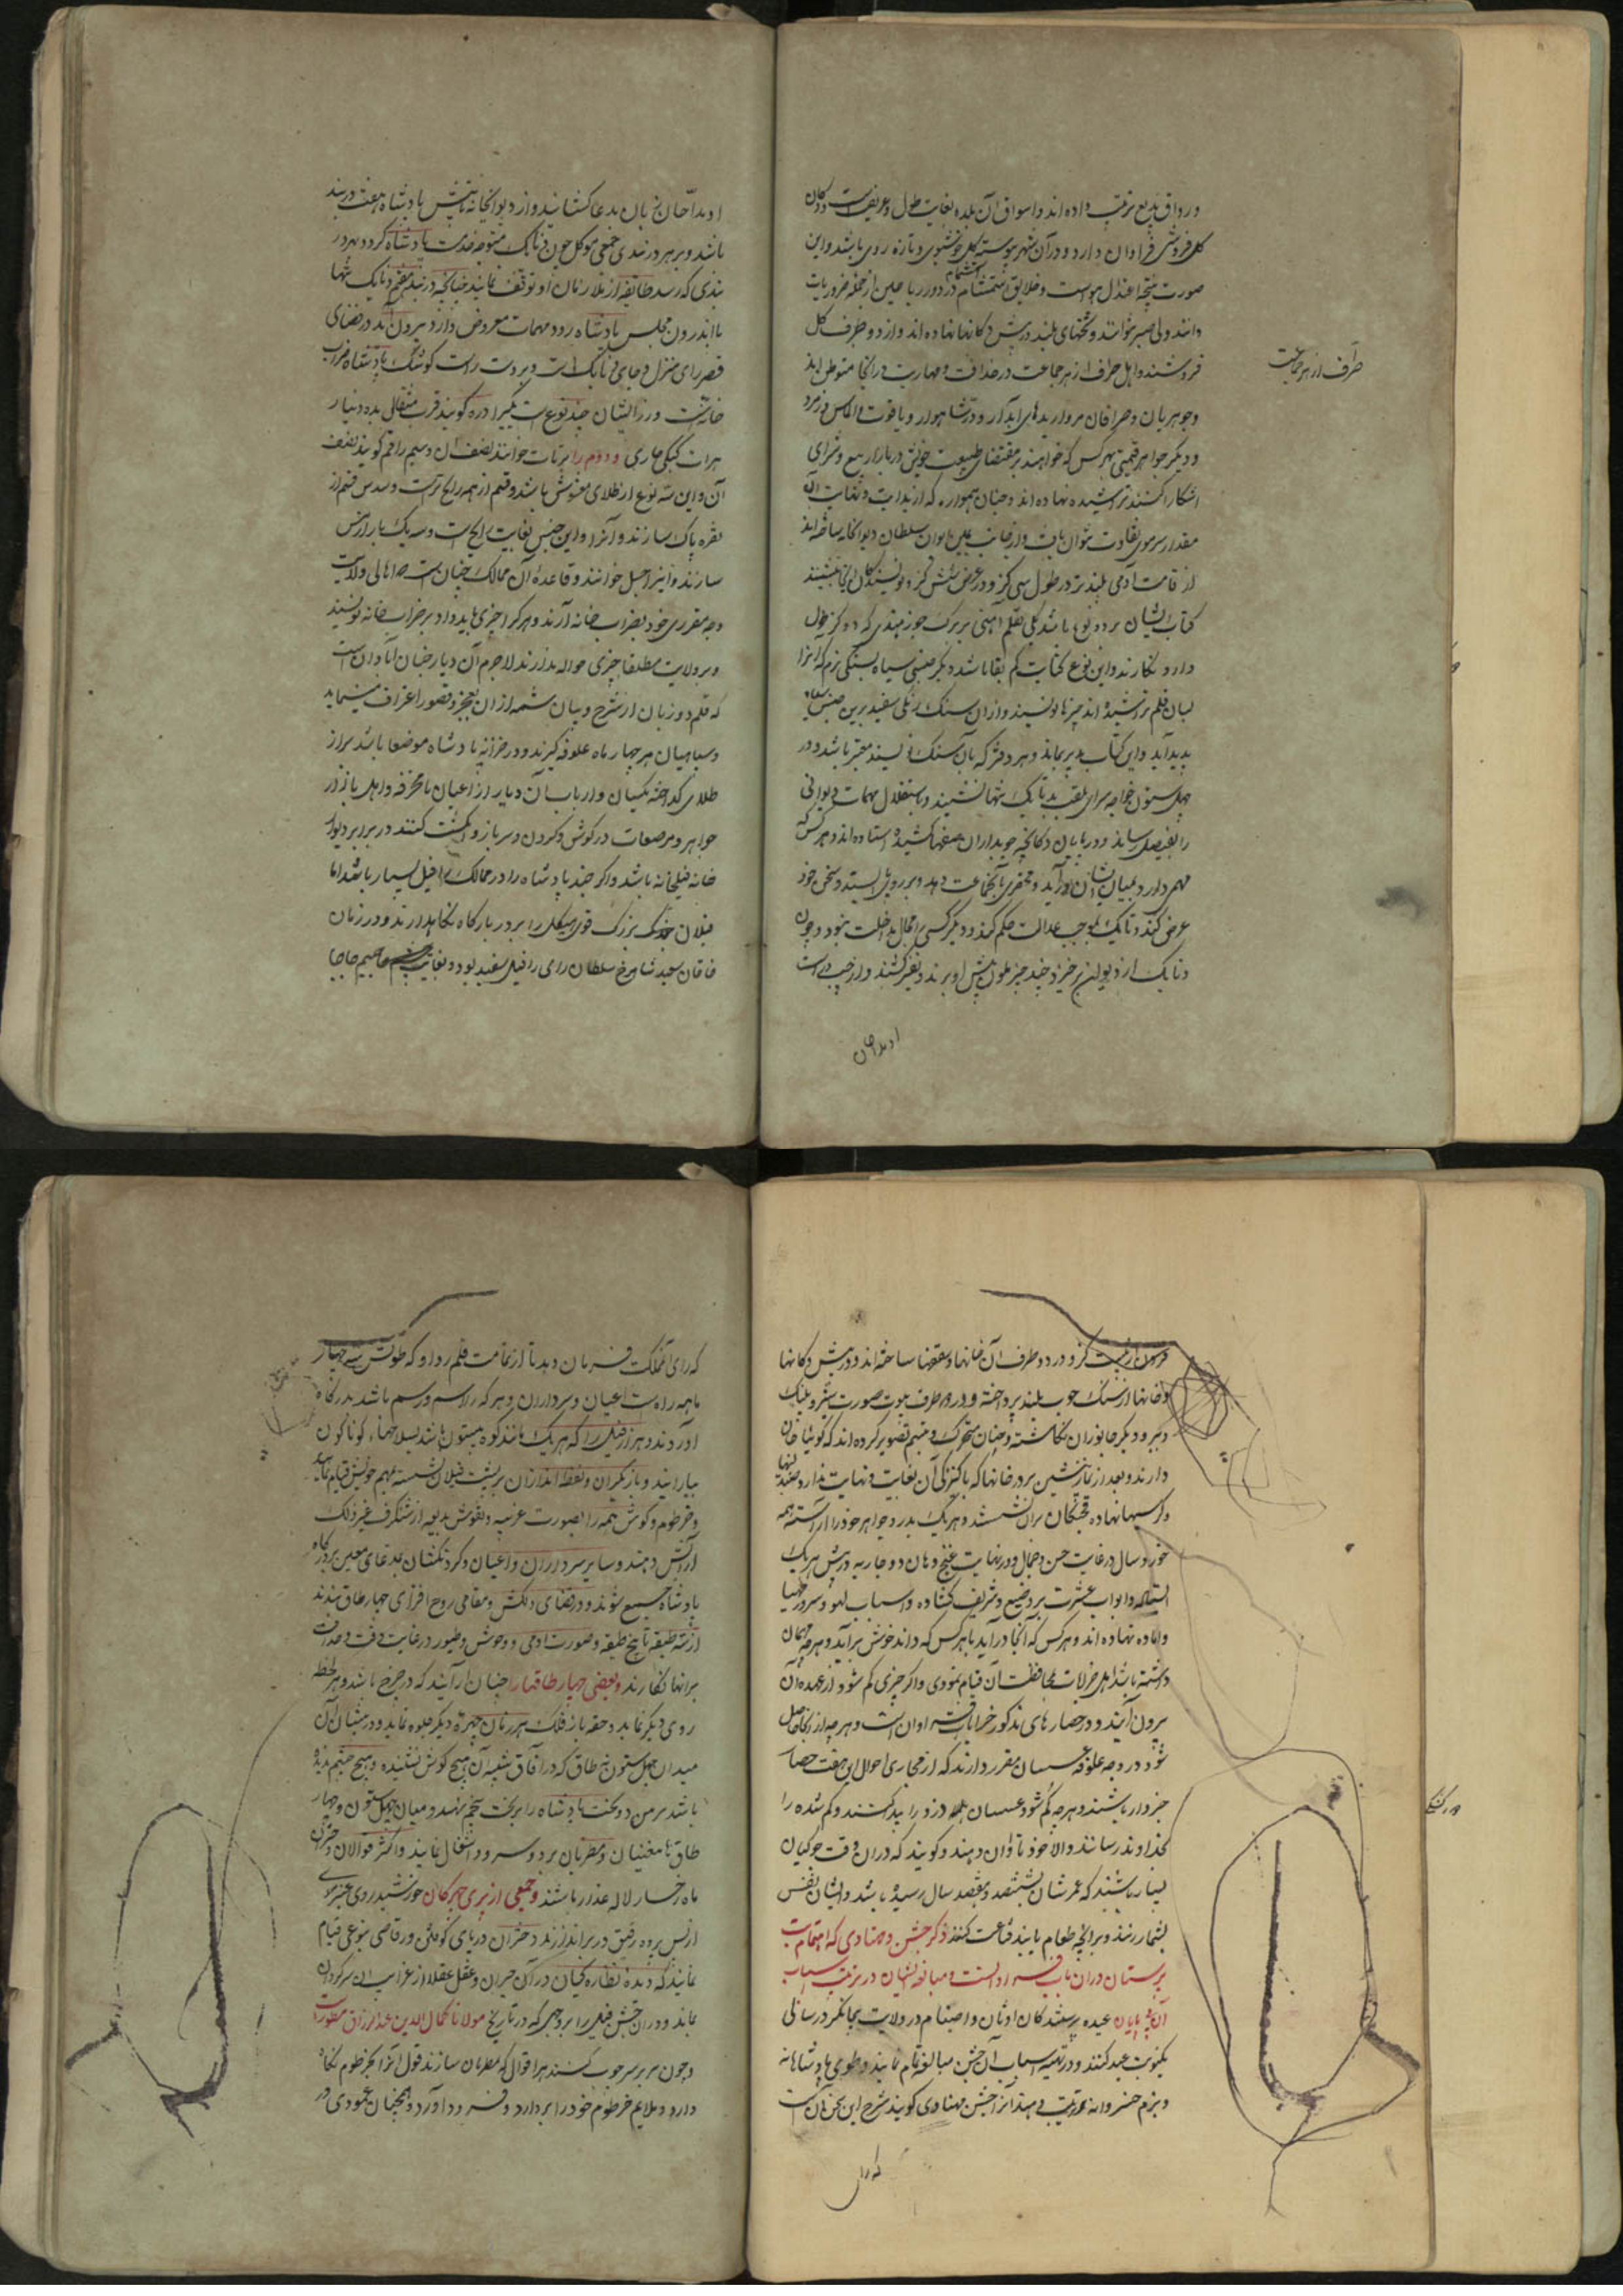 و رواق بدیع ترتیب داده اند و اسواق آن بلده بغایت طول و عریض است و دکان
کل فروشی فراوان دارد و در آن شهر پیوسته کل خوشبوی و تازه روی باشد و این
صورت نتیجه اعتدال هواست و خلایق استشمام در دور ریاحین از جمله ضروریات
دانند و بی صبر نتوانند و تختهای بلند در پیش دکانها نهاده اند و از دو طرف کل
فروشند و اهل حرف از هر جماعت در حذاقت و مهارت در آنجا متوطن اند
صراف از هر جماعت
و جوهریان و صرافان مرواریدهای آبدار و در شاهوار و یاقوت و الماس و زمرد
و دیگر جواهر قیمتی بهر کس که خواهند بر مقتضای طبیعت خویش در بازار بیع و شرای
آشکارا کنند تراشیده نهاده اند و چنان هموار که از بدایت و نهایت آن
مقدار سر موی تفاوت نتوان یافت و از جانب یمین ایوان سلطان دیوانخانه ساخته اند
از قامت آدمی بلندتر در طول سی کز و در عرض شش کز و نویسندگان آنجا نشینند
کتاب ایشان بر دو نوع باشد یکی بقلم آهنی بر برک جوز هندی که دو کز طول
دارد نکارند و این نوع کتابت کم بقا باشد دیکر جنسی سیاه بسنکی نرم که آنرا
بسان قلم تراشیده اند چیزها نویسند و از آن سنک رنکی سفید برین جنس سیاه
پدید آید و این کتاب دیر بماند و هر دفتر که بآن سنک نویسند معتبر باشد و در
چهل ستون خواجه سرای ملقب بدنایک تنها نشیند و باستقلال مهمات دیوانی
را بفیصل رساند و در پایان دکانچه چوبداران صفها کشیده استاده اند و هر کس که
مهمی دارد بمیان ایشان در آید و محقری بآنجماعت دهد و بر روی بایستد و سخن خود
عرض کند و دنایک بموجب عدالت حکم کند و دیگر کسی را مجال مداخلت نبود و چون
دنایک از دیوان برخیزد چند چتر ملون پیش او برند و نفیر کشند و از چپ و راست
او مداحان
او مداحان زبان بدعا کشایند و از دیوانخانه تا پیش پادشاه هفت دربند
باشد و بر هر دربندی جمعی موکل چون دنایک متوجه خدمت پادشاه کردد بهر در
بندی که رسد طایفه از ملازمان او توقف نمایند چنانچه در بند هفتم دنایک تنها
باندرون مجلس پادشاه رود و مهمات معروض دارد و بیرون آید و در فضای
قصر رای منزل و جای دنایک است و بر دست راست کوشک پادشاه ضراب
خانه است و زر ایشان چند نوع است یکی را دره کویند قرب مثقالی بده دینار
هرات کبکی صاری و دوم را پرتاب خوانند نصف آن و سیم را فنم کویند نصف
آن و این سه نوع از طلای مغشوش باشد و فنم از همه رایج تر است و سدس فنم از
نقره پاک سازند و آنرا و این جنس بغایت رایج است و سه یک تار از مس
سازند و آنرا جیتل خوانند و قاعده آن ممالک چنان است که اهالی ولایت
وجه مقرری خود بضراب خانه آرند و هر کرا چیزی باید داد بر ضراب خانه نویسند
و بر ولایت مطلقا چیزی حواله ندارند لاجرم آن دیار چنان آبادان است
که قلم دو زبان از شرح و بیان شمه از آن بعجز و قصور اعتراف مینماید
و سپاهیان هر چهار ماه علوفه گیرند و در خزانه پادشاه موضعها باشد پر از
طلای کداخته یکسان و ارباب آن دیار از اعیان تا محترفه و اهل بازار
جواهر و مرصعات در کوش و کردن و سر بازو و انکشت کنند و در برابر دیوان
خانه فیلخانه باشد و اکر چند پادشاه را در ممالک فیل بسیار باشد اما
فیلان خنک بزرک قوی هیکل را بر در بارکاه نکاه دارند و در زمان
خاقان سعید شاهرخ سلطان رای را فیل سفید بود و بغایت جسیم جابجا
عرض بیست کز و در دو طرف آن خانها و صفها ساخته اند و در پیش دکانها
و خانها از سنک چوب بلند پرداخته و در دو طرف بیوت صورت شیر و پلنک
و ببر و دیکر جانوران نکاشته و چنان متحرک و متبسم تصویر کرده اند که کوییا جان
دارند و بعد از نماز پیشین بر در خانها که پاکیزکی آن بغایت و نهایت ندارد صندلیها
و کرسیها نهاده قحبکان بر آن نشینند و هر یک بدر و جواهر خود را آراسته همه
خورد سال در غایت حسن و جمال و در نهایت غنج و دلال و دو جاریه در پیش هر یک
ایستاده و ابواب عشرت بر وضیع و شریف کشاده و اسباب لهو و سرور مهیا
و آماده نهاده اند و هر کس که آنجا در آید با هر کس که داند خوش برآید و هر چه همیان
داشته باشد اهل خرابات بمحافظت آن قیام نمودی و اکر چیزی کم شود از عهده آن
بیرون آیند و در حصارهای مذکور خرابات فراوان است و هر چه از آنجا حاصل
شود در وجه علوفه عسسان مقرر دارند که از مجاری احوال این هفت حصار
خبردار باشند و هر چه کم شود عسسان دزد را پیدا کنند و کم شده را
بخداوند رسانند و الا خود تاوان دهند و کویند که در آن وقت جوکیان
بسیار باشند که عمر ایشان بششصد و هفتصد سال رسیده باشد و ایشان نفس
بشمار زنند و بر آنچه طعام یابند قناعت کنند ذکر جشن و مهنادی که اهتمام بت
پرستان در آن باب فراوانست و مبالغه ایشان در ترتیب اسباب
آن بی پایان عبده پرستندکان اوثان و اصنام در ولایت بیجانکر در سالی
یکنوبت عید کنند و در تهیه اسباب آن جشن مبالغه تمام نمایند و طوی پادشاهانه
و بزم خسروانه ترتیب دهند و آنرا جشن مهنادی کویند شرح این سخن آن است
که رای
که رای آن مملکت فرمان دهد تا از تمامت قلمرو او که طولش سه چهار
ماهه راه است اعیان و سرداران و هر که را اسم و رسم باشد بدرکاه
او آورند و هزار فیل را که هر یک مانند کوه بیستون باشد بسلاحهاء کوناکون
بیارایند و بازیکران و نفط اندازان بر پشت فیلان نشسته بمهم خویش قیام نمایند
و خرطوم و کوش همه را بصورت غریبه و نقوش بدیعه از شنکرف و غیر ذلک
آرایش دهند و سایر سرداران و اعیان و کردنکشان بمدعای معین بر درکاه
پادشاه جمع شوند و در فضای دلکش و مقامی روح افزای چهار طاق بندند
از سه طبقه تا پنج طبقه و صورت آدمی و وحوش و طیور در غایت دقت و حذاقت
بر آنها نکارند و بعضی چهار طاقها را چنان آرایند که در چرخ باشد و هر لحظه
روی دیکر نماید و حقه باز فلک هر زمان چهره دیکر جلوه نماید و در پیشان آن
میدان چهل ستون نه طاق که در آفاق شبیه آن هیچ کوش نشنیده و هیچ چشم ندیده
باشد بر من دو تخت پادشاه را بر تخت نهم نهند و میان چهل ستون و چهار
طاقها مغنیان و مطربان برود و سرود اشتغال نمایند و اکثر قوالان دختران
ماه رخسار لاله عذار باشند و جمعی از پری چهرکان خورشید روی عنبر موی
از پس پرده رفیق در برابر زنند دختران در پای کوفتن و رقاصی بنوعی قیام
نمایند که دیده نظاره کیان در آن حیران و عقل عقلا از غرایب آن سرکردان
بماند و در آن جشن فیل را بر وجهی که در تاریخ مولانا کمال الدین عبدالرزاق مسطور است
و چون مر بر سر چوب کنند هر اقوال که مطربان سازند قول آنرا بخرطوم نکاه
دارد و ملایم خرطوم خود را بردارد و فرود آورد و همچنان عمودی در